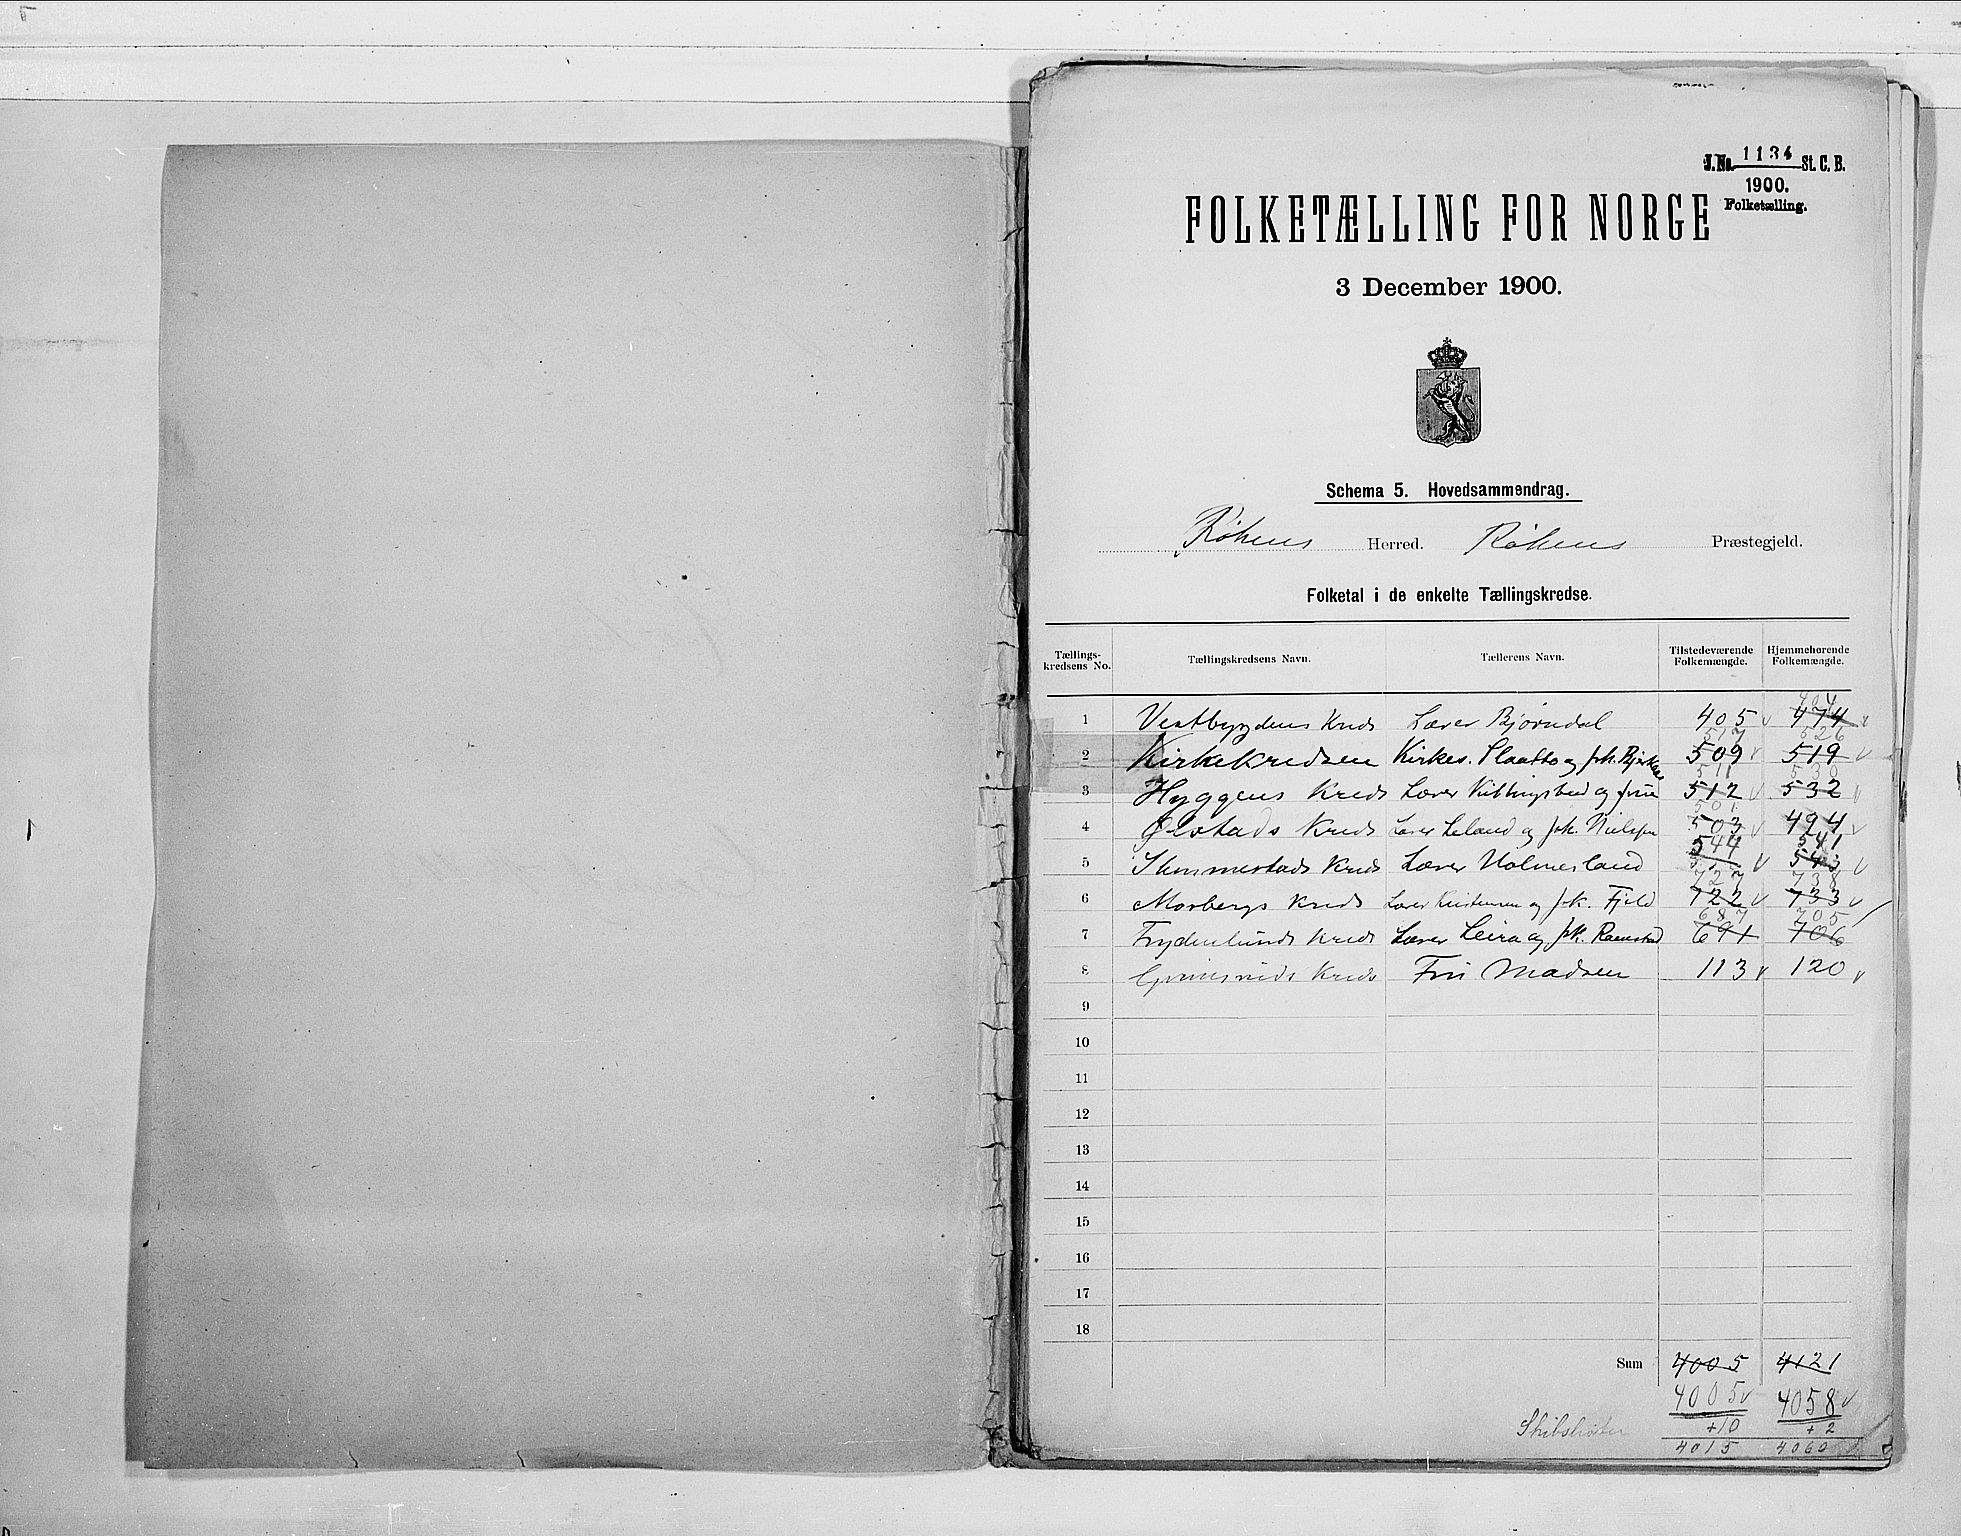 J. No. 1134 St. C. B.
1900.
Folketælling.
FOLKETÆLLING FOR NORGE
3 December 1900.
Schema 5. Hovedsammendrag.
Røkens Herred. Røkens Præstegjeld.
Folketal i de enkelte Tællingskredse.
Tællings-kredsens No. Tællingskredsens Navn. Tællerens Navn. Tilstedeværende Folkemængde. Hjemmehørende Folkemængde.
404
1 Vestbygdens Kreds Lærer Bjørndal 405 474
517 526
2 Kirkekredsen Kirkes. Plaatto og 509 519
511 530
3 Hyggens Kreds Lærer og 512 532
501
4 Ølstads Kreds Lærer Leland og Joh. Nielsen 503 494
544 541
5 Slemmestads Kreds Lærer Holmesland 543
727 738
6 Morbergs Kreds Lærer Kristensen og Joh. Fjeld 722 733
687 705
7 Frydenlunds Kreds Lærer Leira og 691 706
8 Kreds Fru Madsen 113 120
9
10
11
12
13
14
15
16
17
18
Sum 4005 4121
4005 4058
Skibslister +10 +2
4015 4060